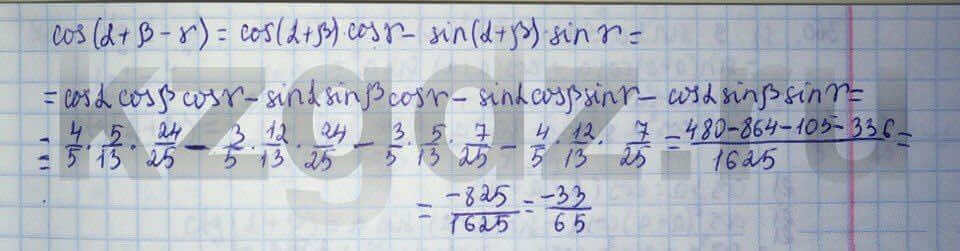 cos(α+β-γ) = cos(α+β) cosγ - sin(α+β) · sinγ =
= cosα cosβ cosγ - sinα sinβ cosγ - sinα cosβ sinγ - cosα sinβ sinγ =
= 4/5 · 5/13 · 24/25 - 3/5 · 12/13 · 24/25 - 3/5 · 5/13 · 7/25 - 4/5 · 12/13 · 7/25 = (480-864-105-336)/1625 =
= -825/1625 = -33/65
kzgdz.ru